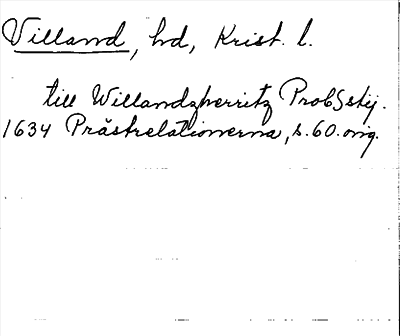 Villand, hd, Krist. l.
till Willandzherritz Probstij.
1634 Prästrelationerna, s. 60. orig.